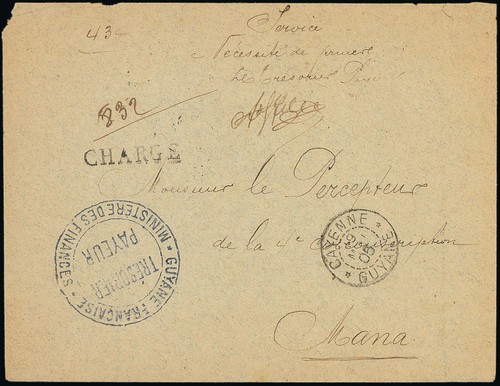 43
Service
Nécessité de primere
Le Trésorier Payr
832
CHARGÉ
Monsieur le Percepteur
de la 4e circonscription
Mana
GUYANE FRANÇAISE * MINISTÈRE DES FINANCES *
TRÉSORIER
PAYEUR
CAYENNE
9
05
* GUYANE *